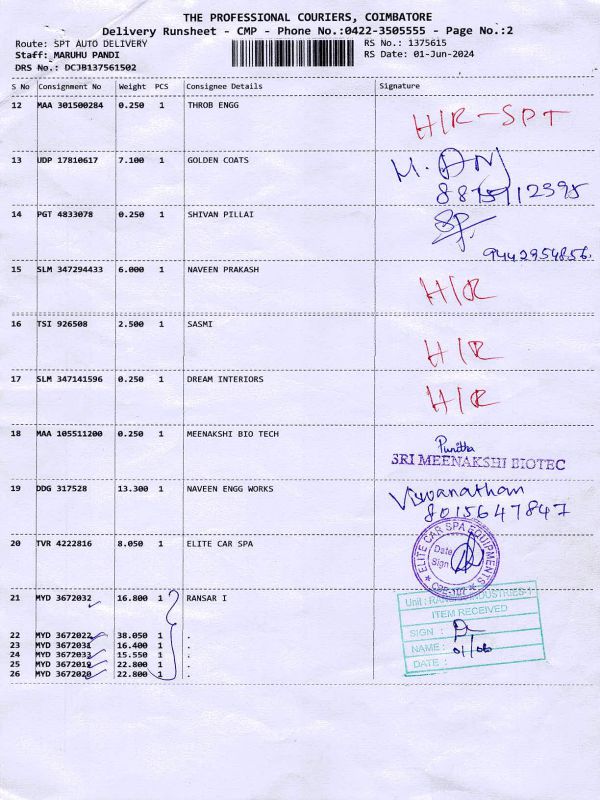 THE PROFESSIONAL COURIERS, COIMBATORE
Delivery Runsheet - CMP - Phone No.:0422-3505555 - Page No.:2
Route: SPT AUTO DELIVERY RS No.: 1375615
Staff: MARUHU PANDI RS Date: 01-Jun-2024
DRS No.: DCJB137561502
S No Consignment No Weight PCS Consignee Details Signature
12 MAA 301500284 0.250 1 THROB ENGG
H/R-SPT
13 UDP 17810617 7.100 1 GOLDEN COATS
8815112395
14 PGT 4833078 0.250 1 SHIVAN PILLAI
SP.
9442954856.
15 SLM 347294433 6.000 1 NAVEEN PRAKASH
H/R
16 TSI 926508 2.500 1 SASMI
H/R
17 SLM 347141596 0.250 1 DREAM INTERIORS
H/R
18 MAA 105511200 0.250 1 MEENAKSHI BIO TECH
Punitha
SRI MEENAKSHI BIOTEC
19 DDG 317528 13.300 1 NAVEEN ENGG WORKS
8015647847
20 TVR 4222816 8.050 1 ELITE CAR SPA
ELITE CAR SPA EQUIPMENTS
Date
Sign
21 MYD 3672032 16.800 1 RANSAR I
Unit :
ITEM RECEIVED
22 MYD 3672022 38.050 1 .
SIGN :
23 MYD 3672031 16.400 1 .
24 MYD 3672033 15.550 1 .
NAME : 01/06
25 MYD 3672019 22.800 1 .
DATE :
26 MYD 3672020 22.800 1 .